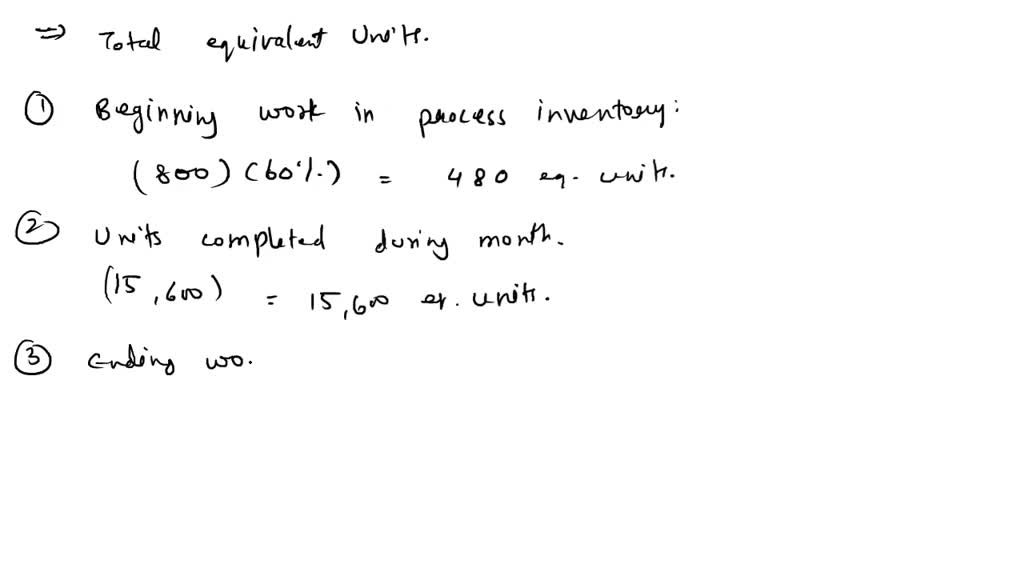 ⇒ Total equivalent Units.
① Beginning work in process inventory:
(800) (60%) = 480 eq. units.
② Units completed during month.
(15,600) = 15,600 eq. units.
③ Ending wo.